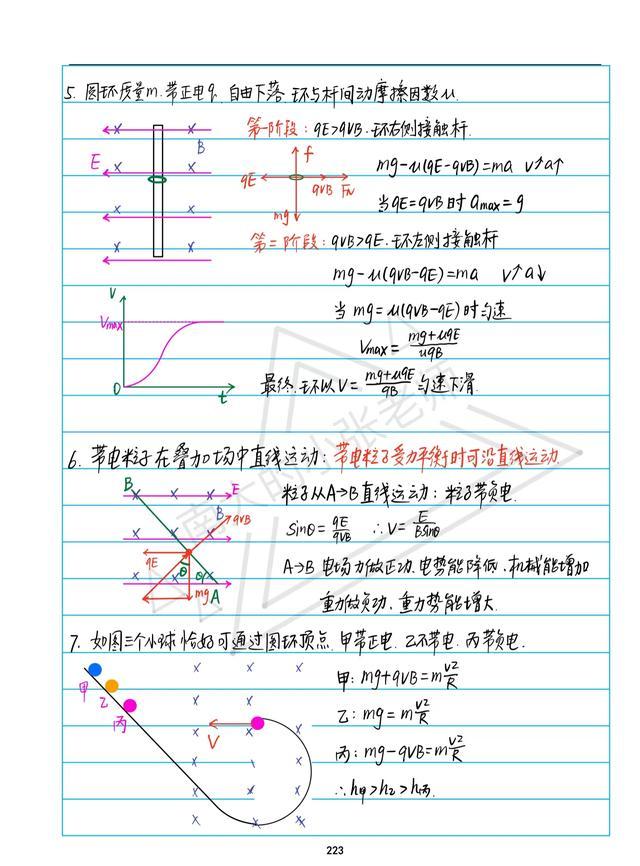 5. 圆环质量m. 带正电q. 自由下落. 环与杆间动摩擦因数μ.
B
E
第一阶段: qE>qVB. 环右侧接触杆.
f
qE
qVB
FN
mg
mg-μ(qE-qVB)=ma V↑a↑
当qE=qVB时 amax=g
第二阶段: qVB>qE. 环左侧接触杆
mg-μ(qVB-qE)=ma V↑a↓
当 mg=μ(qVB-qE)时匀速
Vmax= mg+μqE/μqB
最终. 环以V= mg+μqE/qB 匀速下滑.
V
Vmax
0
t
南大的小张老师
6. 带电粒子在叠加场中直线运动: 带电粒子受力平衡时可沿直线运动.
B
E
B
qVB
qE
θ
θ
mg
A
粒子从A→B直线运动: 粒子带负电.
Sinθ= qE/qVB ∴V= E/BSinθ
A→B 电场力做正功. 电势能降低、机械能增加
重力做负功、重力势能增大.
7. 如图三个小球恰好可通过圆环顶点. 甲带正电. 乙不带电. 丙带负电.
甲
乙
丙
V
甲: mg+qVB=m V²/R
乙: mg=m V²/R
丙: mg-qVB=m V²/R
∴h甲>h乙>h丙.
223